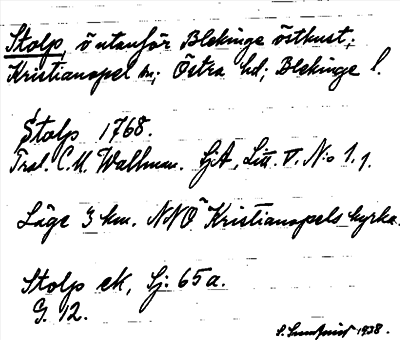 Stolp, ö utanför Blekinge östkust;
Kristianopel sn; Östra hd; Blekinge l.
Stolp 1768.
Tral. C.U. Wallman. SjA, Litt. V. No 1. 1.
Läge 3 km. NNÖ Kristianopels kyrka.
Stolp ek, Sj: 65a.
G. 12.
S. Lundquist 1938.